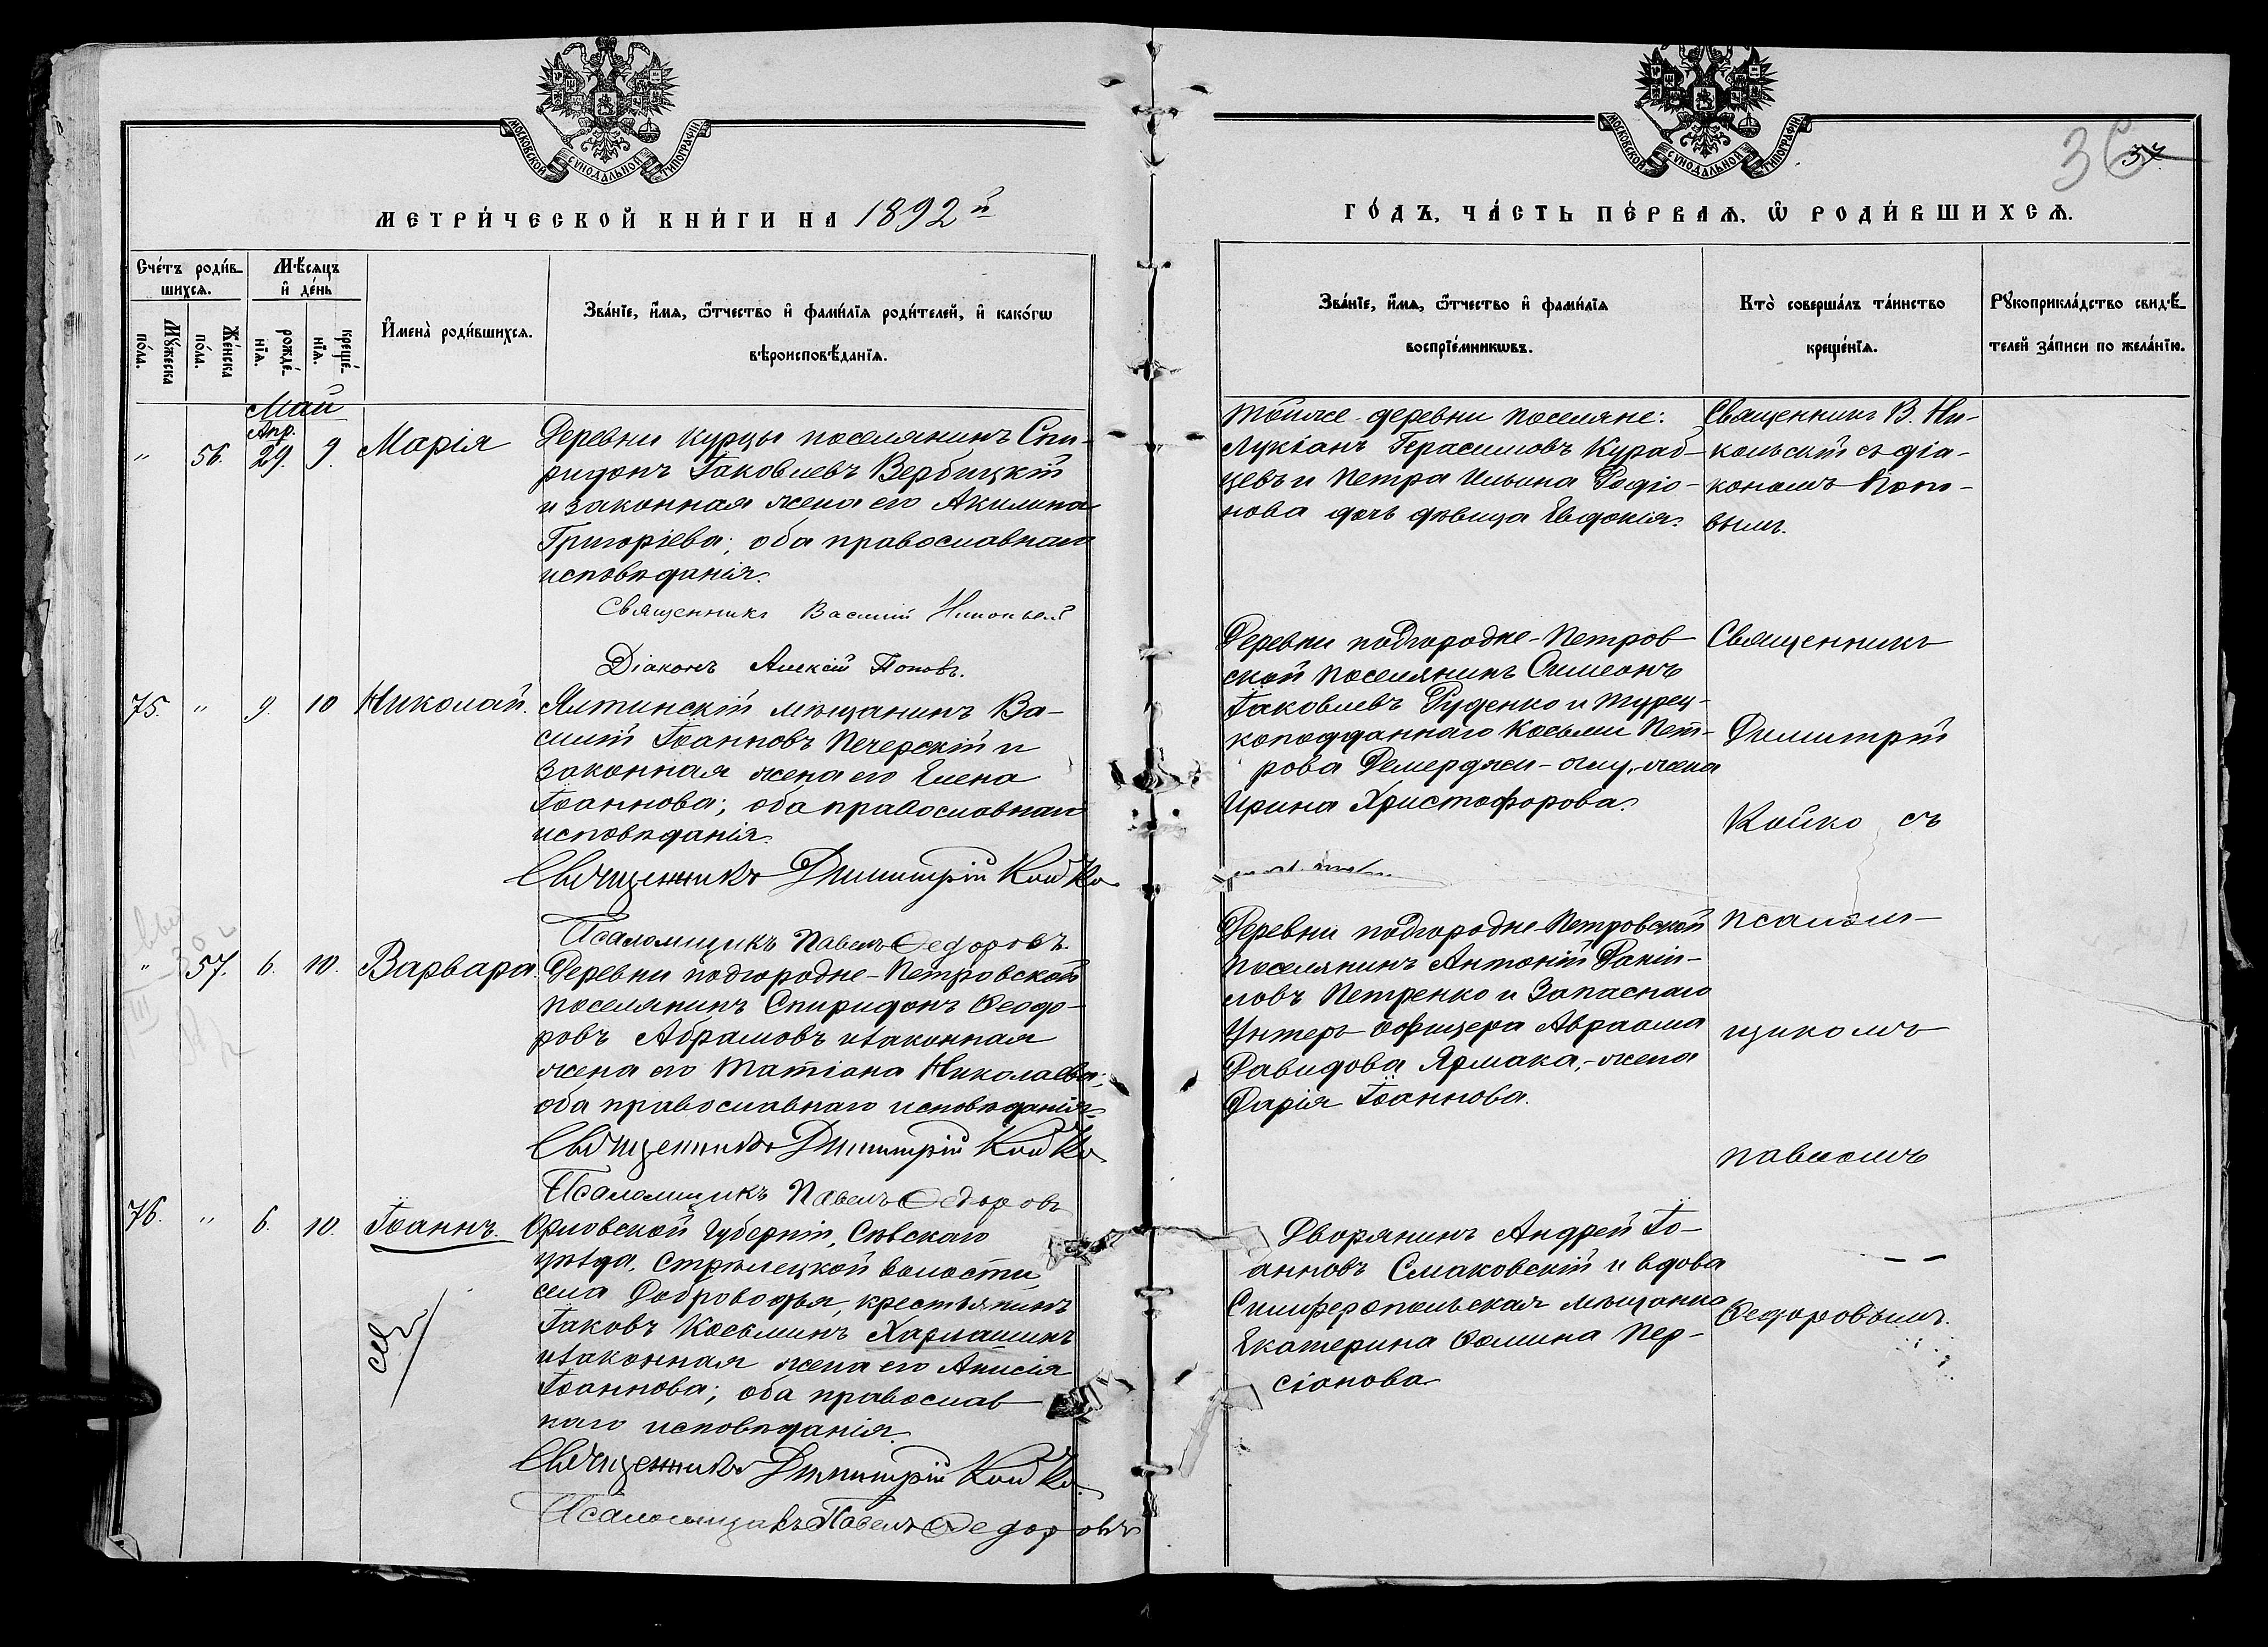 МОСКОВСКОЙ СѴНОДАЛЬНОЙ ТИПОГРАФІИ
МЕТРИ́ЧЕСКОЙ КНИ́ГИ НА 1892й
Сче́тъ роди́в-
шихся.
Мѣ́сяцъ
и҆ де́нь
Мꙋ́жеска
по́ла.
Же́нска
по́ла.
рожде́-
нїя.
креще́-
нїя.
И҆мена̀ роди́вшихся.
Зва́нїе, и҆́мя, ѻ҆́тчество и҆ фами́лїя роди́телей, и҆ како́гѡ
вѣроисповѣ́данїя.
Май
Апр.
" 56. 29. 9. Марія
Деревни Курцы поселянинъ Спи-
ридонъ Іаковлевъ Вербицкій
и законная жена его Акилина
Григоріева; оба православнаго
исповѣданія.
Священникъ Василій Никольскій
Діаконъ Алексій Поповъ.
75. " 9. 10 Николай.
Ялтинскій мѣщанинъ Ва-
силій Іоанновъ Печерскій и
законная жена его Елена
Іоаннова; оба православнаго
исповѣданія.
Священникъ Димитрій Койко
Псаломщикъ Павелъ Ѳедоровъ.
" 57. 6. 10. Варвара.
Деревни подгородне-Петровской
поселянинъ Спиридонъ Ѳеодо-
ровъ Абрамовъ и законная
жена его Татіана Николаева;
оба православнаго исповѣданія.
Священникъ Димитрій Койко
Псаломщикъ Павелъ Ѳедоровъ
76. " 6. 10. Іоаннъ.
Орловской Губерніи, Сѣвскаго
уѣзда, Стрѣлецкой волости,
села Доброводья, крестьянинъ
Іаковъ Косьминъ Харлашинъ
и законная жена его Анисія
Іоаннова; оба православ
наго исповѣданія.
Священникъ Димитрій Койко.
Псаломщикъ Павелъ Ѳедоровъ
МОСКОВСКОЙ СѴНОДАЛЬНОЙ ТИПОГРАФІИ
36
37.
ГО́ДЪ, ЧА́СТЬ ПЕ́РВАЯ, Ѽ РОДИ́ВШИХСЯ.
Зва́нїе, и҆́мя, ѻ҆́тчество и҆ фами́лїя
воспрїе́мникѡвъ.
Кто̀ соверша́лъ та́инство
креще́нїя.
Рꙋкоприкла́дство свидѣ́-
телей за́писи по жела́нїю.
тойже деревни поселяне:
Лукіанъ Герасимовъ Кураб-
цевъ и Петра Ильина Родіо-
нова дочь дѣвица Евдокія.
Священникъ В. Ни-
кольскій съ діа-
кономъ Попо-
вымъ.
Деревни подгородне-Петров
ской поселянинъ Симеонъ
Іаковлевъ Руденко и турец-
коподданнаго Косьмы Пет-
рова Демерджи-оглу, жена
Ирина Христофорова.
Деревни подгородне-Петровской
поселянинъ Антоній Даніи-
ловъ Петренко и запаснаго
Унтеръ-офицера Авраама
Давидова Ярмака,-жена
Дарія Іоаннова.
Дворянинъ Андрей Іо-
анновъ Смаковскій и вдова
Симферопольская мѣщанка
Екатерина Ѳомина Пер-
сіанова
Священникъ
Димитрій
Койко съ
псалом-
щикомъ
Павломъ
Ѳедоровымъ.